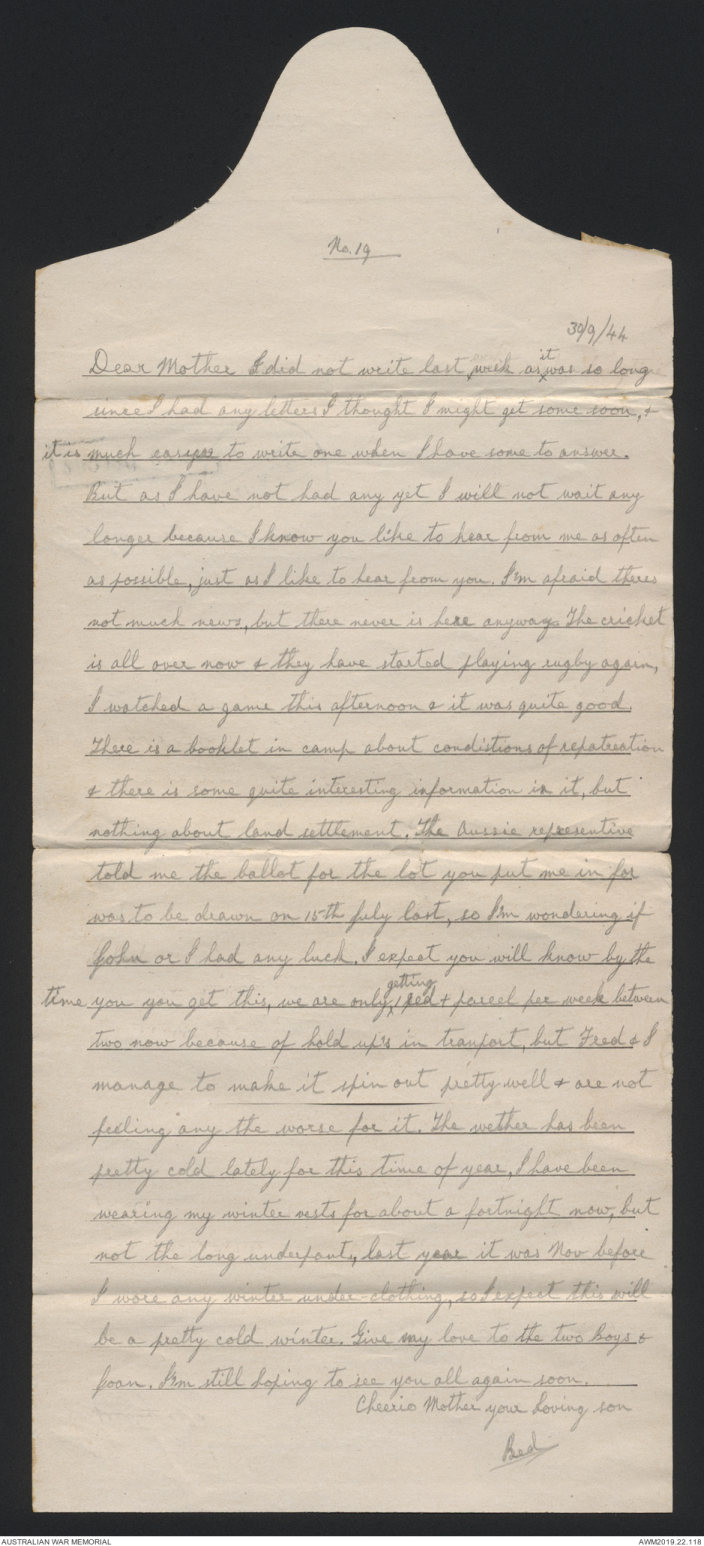 No. 19
30/9/44
Dear Mother I did not write last week as it was so long
since I had any letters I thought I might get some soon, &
it is much easier to write one when I have some to answer.
But as I have not had any yet I will not wait any
longer because I know you like to hear from me as often
as possible, just as I like to hear from you. I'm afraid theres
not much news, but there never is here anyway. The cricket
is all over now & they have started playing rugby again,
I watched a game this afternoon & it was quite good.
There is a booklet in camp about condistions of repatreation
& there is some quite interesting information in it, but
nothing about land settlement. The Aussie representive
told me the ballot for the lot you put me in for
was to be drawn on 15th July last, so I'm wondering if
John or I had any luck. I expect you will know by the
time you you get this, we are only getting 1 red + parcel per week between
two now because of hold up's in tranport, but Fred & I
manage to make it spin out pretty well & are not
feeling any the worse for it. The wether has been
pretty cold lately for this time of year, I have been
wearing my winter vests for about a fortnight now, but
not the long underpants, last year it was Nov before
I wore any winter under-clothing, so I expect this will
be a pretty cold winter. Give my love to the two boys &
Joan. I'm still hoping to see you all again soon.
Cheerio Mother your loving son
Red
AUSTRALIAN WAR MEMORIAL
AWM2019.22.118